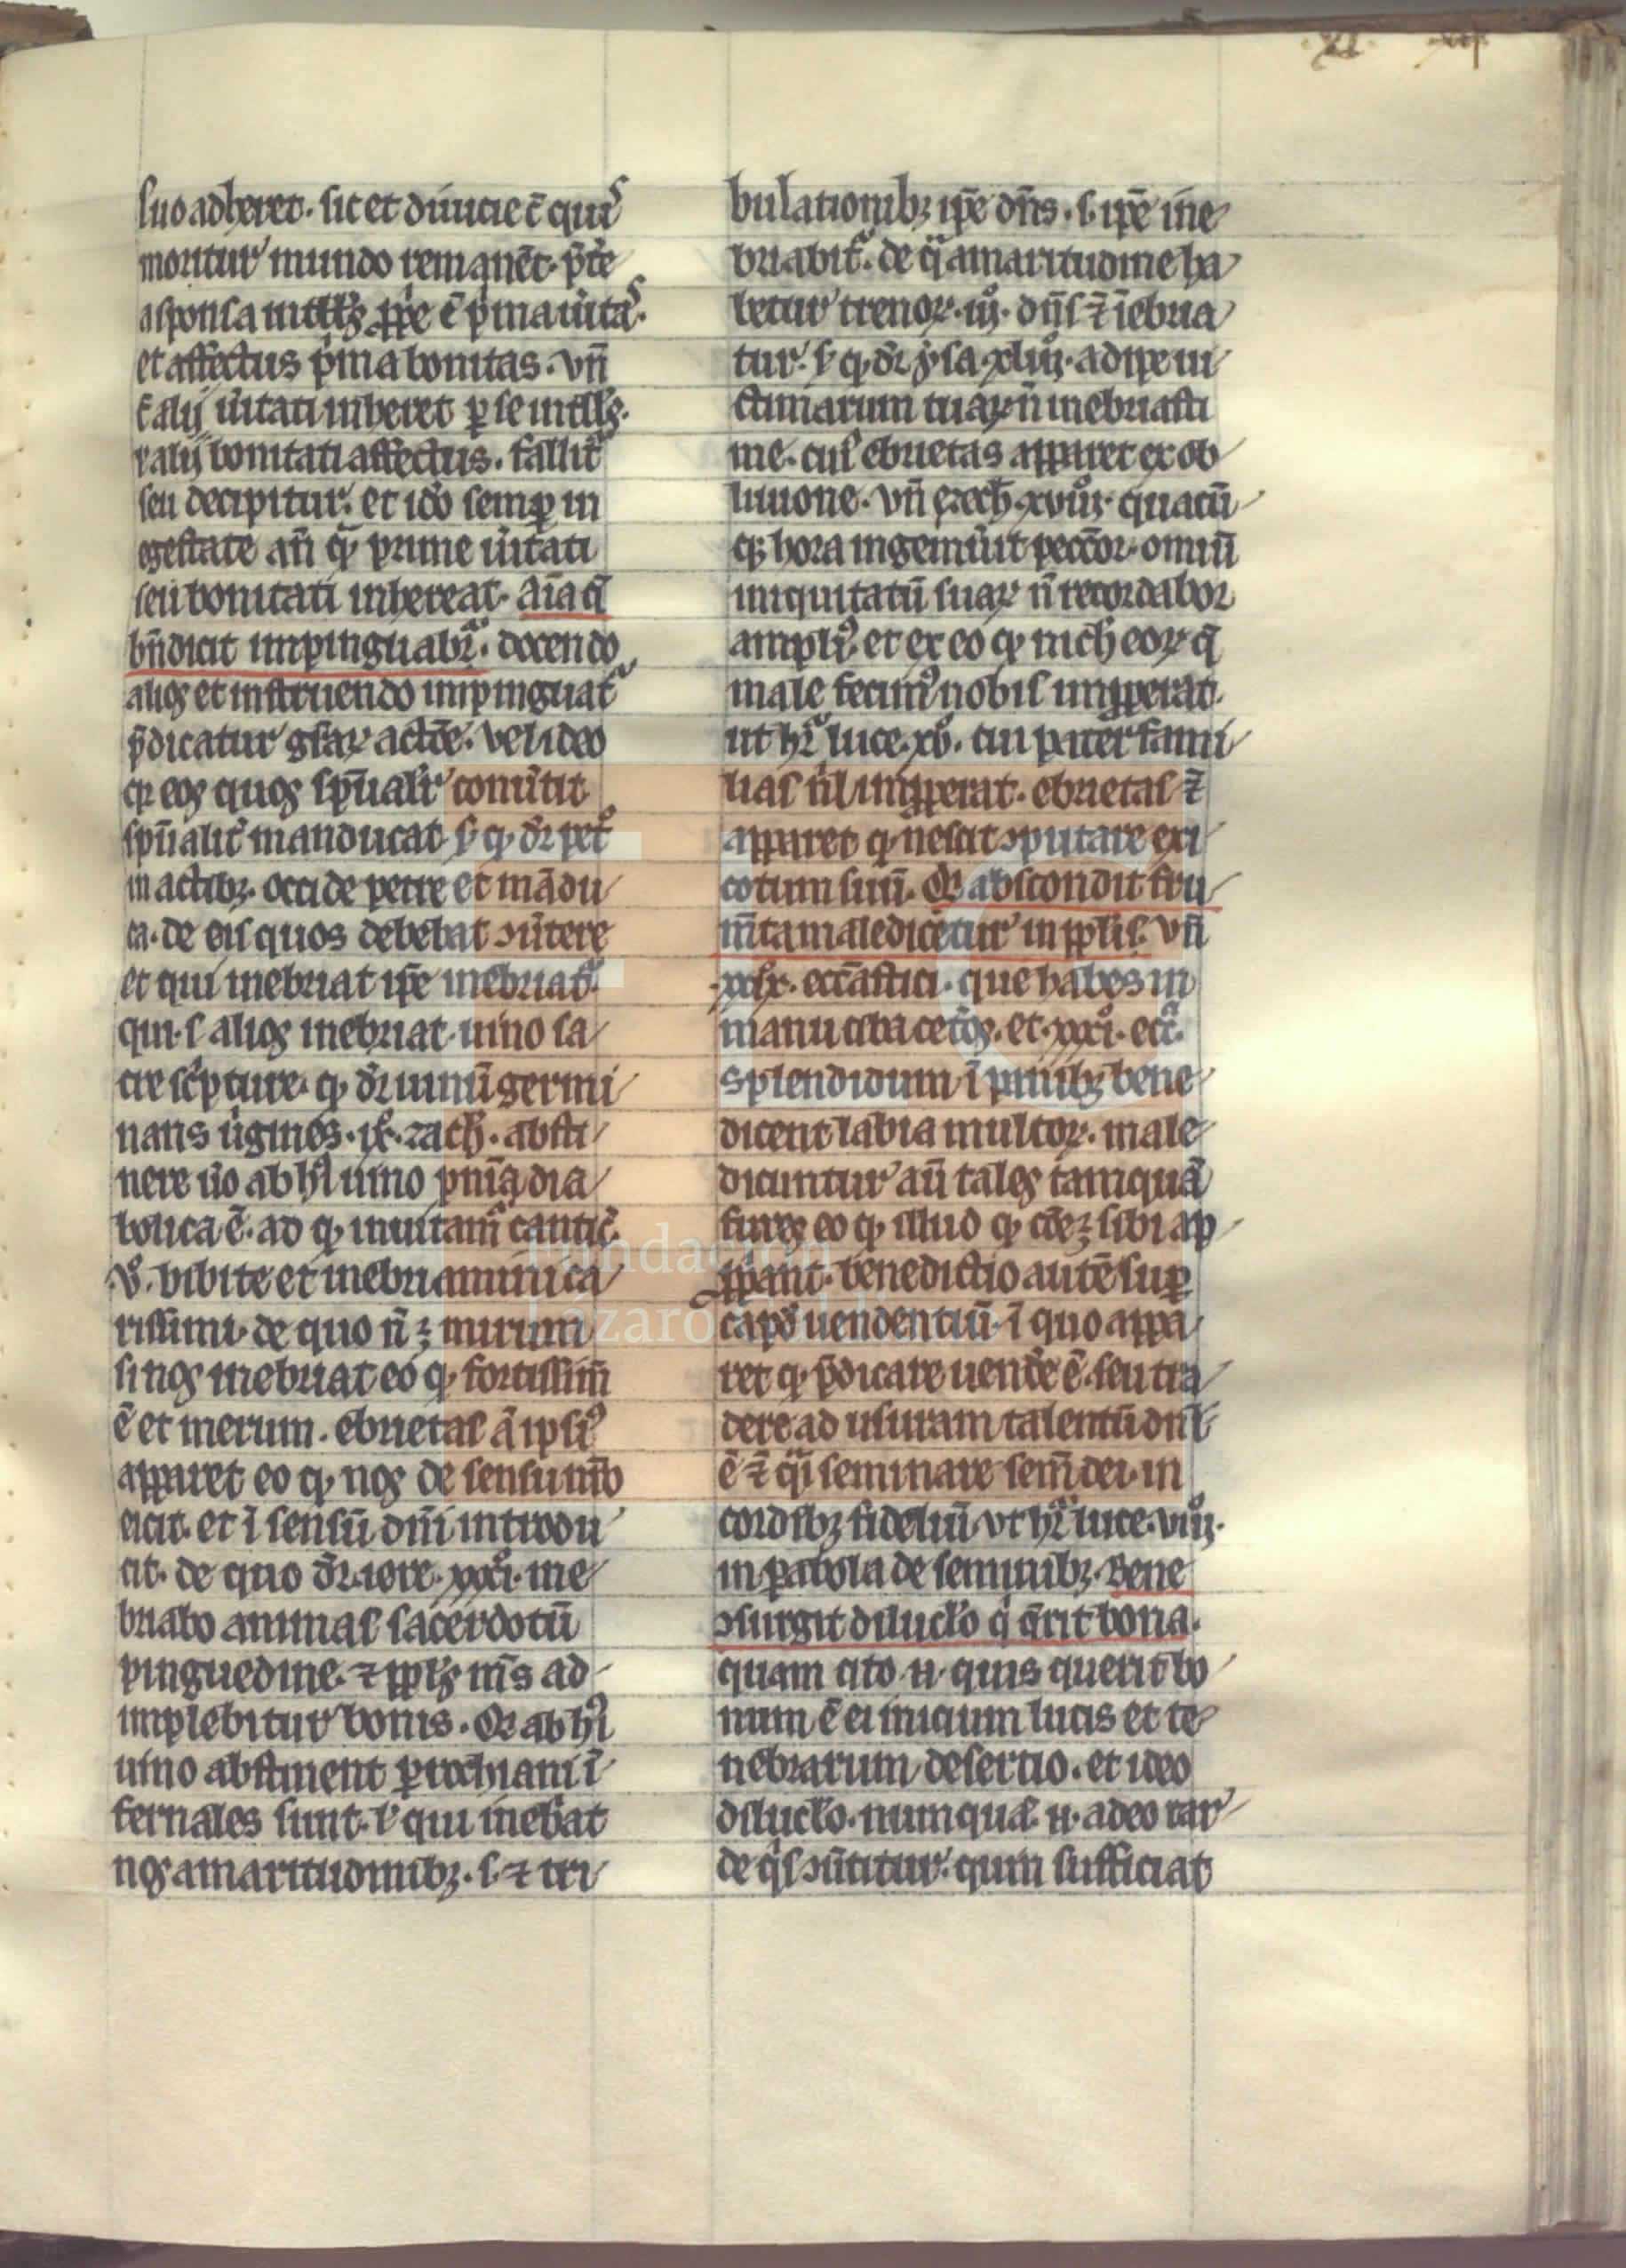 .XI. xij
suo adheret. sic et diuicie ẽ qui᷒
moritur mundo remanẽt. p̃t̾e
a sponsa intłłs ꝓp̃e ẽ p̾ma uı̾tas.
et affectus p̾ma bonitas. vñ
ẽ alij uı̾tati inheret ꝑ se intłłs.
ł alij bonitati affectus. fallit᷑
seu decipitur. et iō semꝑ in
egestate añ qͣ prime uı̾tati
seu bonitati inhereat. aı̃a q̃
bñdicit impinguabr̃. docendo
alios et instruendo impinguat᷑
p̃dicatur głar actōe. vel ideo
qꝛ eos quos sp̃ualit̾ cõuı̾tit
sp̃ualit̾ manducat. ẜ ꝙ dr̃ pet᷒
in actibꝫ. occide petre et mãdu
ca. de eis quos debebat ꝯuı̾tere
et qui inebriat ip̃e inebriat᷑
qui. s. alios inebriat. uino sa
cre sc̾pture. ꝙ dr̃ uinũ germi
nans uı̾gines. ix. zach. absti
nere uo̾ ab hͥ uino pnı̃a dia
bolica ẽ. ad ꝙ inuitam᷑ cantic̃.
v͛. bibite et inebriamini ca
rissimi. de quo ñ ꝫ mirum
si nos inebriat eo ꝙ fortissim̃
ẽ et merum. ebrietas ã ipsi᷒
apparet eo ꝙ nos de sensu nr̃o
eicit. et ĩ sensũ dñi introdu
cit. de quo dr̃. iere. xxxi. ine
briabo animas sacerdotũ
pinguedine. ⁊ ppłs m̃s ad
implebitur bonis. Qꝛ ab hͥ
uino abstinent ꝑrochiani ĩ
fernales sunt. ł qui inebͥat
nos amaritudinibꝫ. s. ⁊ tri
bulationibꝫ ip̃e dñs. s. ip̃e ine
briabit᷑. de qͣ amaritudine ha
betur trenoꝝ. iij. dñs ⁊ ĩebria
tur. ẜ ꝙ dr̃ ysa. xliij. adipe ui
ctimarum tuaꝝ ñ inebriasti
me. cui᷒ ebrietas apparet ex ob
liuione. vñ ezech. xviij. quacũ
qꝫ hora ingemuı̾it peccõr. omniũ
iniquitatũ suaꝝ ñ recordabor
ampli᷒. et ex eo ꝙ nich̃ eoꝝ q̃
male fecim᷒ nobis imꝓperat.
ut hr̃ luce. xv. cui pater fami
lias nͥl imꝓperat. ebrietas ⁊
apparet ꝙ nescit ꝯputare exi
cotum suũ. Qꝛ abscondit fru
m̃ta maledicetur in ppłis. vñ
xxix. ecc̃astici. que habes in
manu ciba cetos. et. xxxi. ecc̃.
splendidum ĩ panibꝫ bene
dicent labia multoꝝ. male
dicuntur aũ tales tamquã
fures eo ꝙ illud ꝙ cõe ꝫ sibi ap
ꝓpͥant. benedictio autẽ suꝑ
caput uendentiũ. ĩ quo appa
ret ꝙ p̃dicare uende̾ ẽ. seu tra
dere ad usuram talentũ dni
ẽ ⁊ qͣi seminare sem̃ dei. in
cordibꝫ fideliũ. vt hr̃ luce. viij.
in ꝑabola de seminibꝫ. Bene
ꝯsurgit diluclo q̃ q̃rit bona.
quam cito. n. quis querit bo
num ẽ ei inicium lucis et te
nebrarum desertio. et ideo
diluclo. numquã. n. adeo tar
de qͥs ꝯuı̾titur. quin sufficiat
Fundación
Lázaro